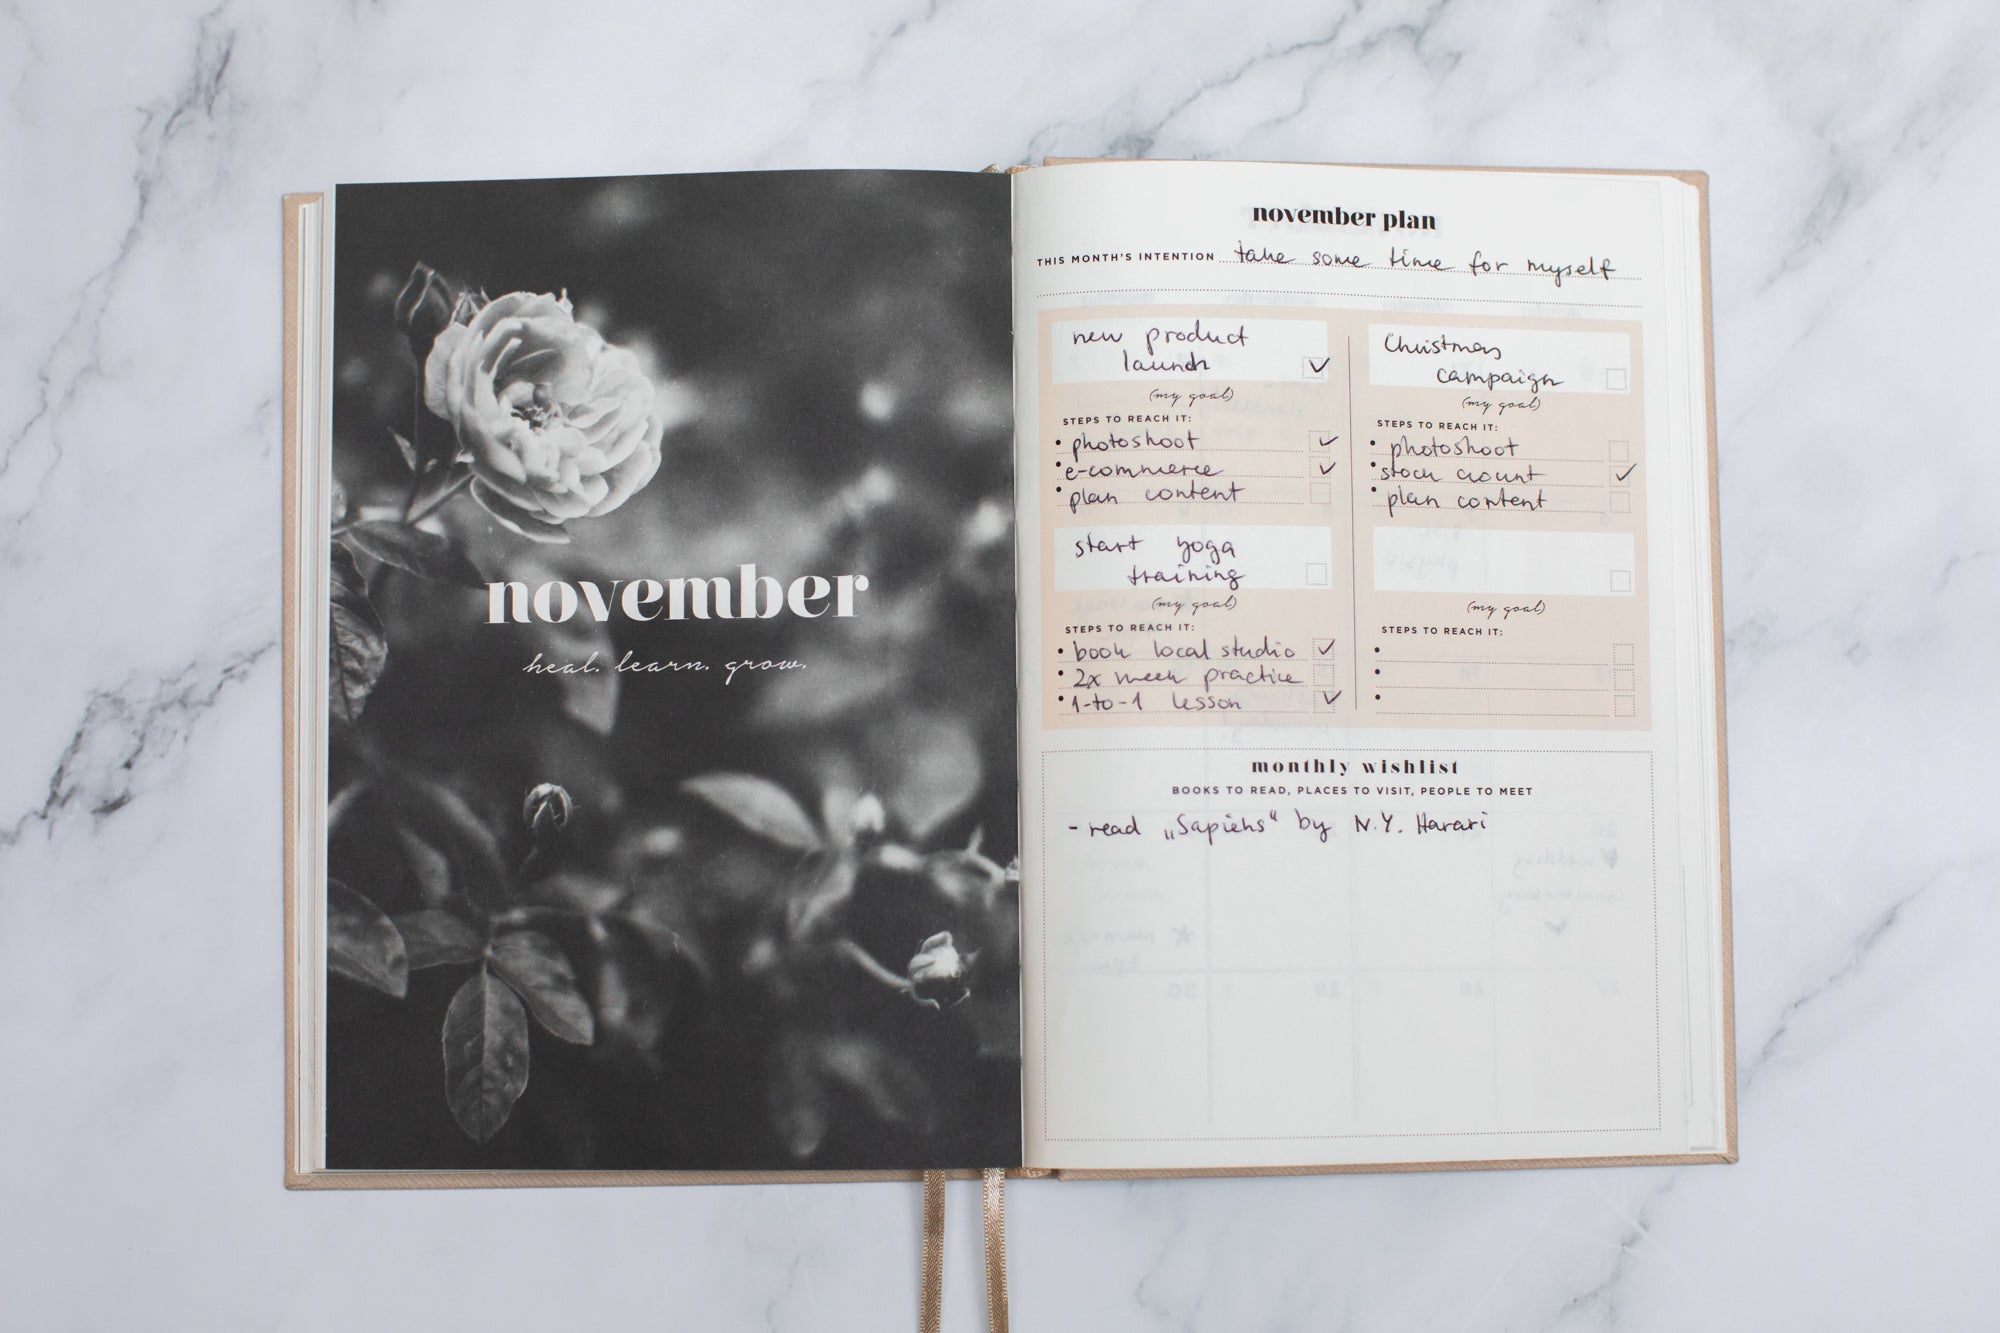 november
heal. learn. grow.
november plan
THIS MONTH'S INTENTION take some time for myself
new product
launch
(my goal)
STEPS TO REACH IT:
• photoshoot
• e-commerce
• plan content
Christmas
campaign
(my goal)
STEPS TO REACH IT:
• photoshoot
• stock count
• plan content
start yoga
training
(my goal)
STEPS TO REACH IT:
• book local studio
• 2x week practice
• 1-to-1 lesson
(my goal)
STEPS TO REACH IT:
monthly wishlist
BOOKS TO READ, PLACES TO VISIT, PEOPLE TO MEET
- read „Sapiens“ by N.Y. Harari